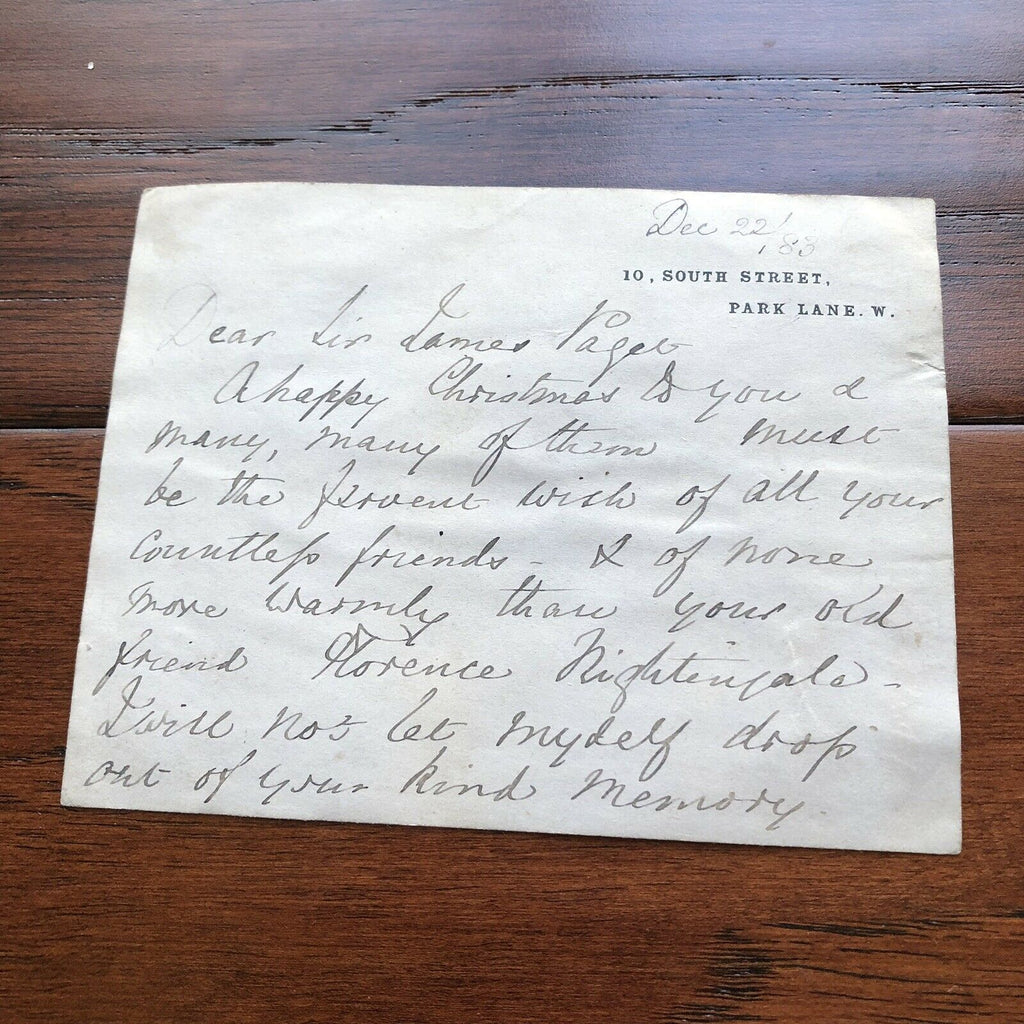 Dec 22/83
10, SOUTH STREET,
PARK LANE. W.
Dear Sir James Paget
A happy Christmas to you &
many, many of them must
be the fervent wish of all your
countless friends - & of none
more warmly than your old
friend Florence Nightingale -
I will not let myself drop
out of your kind memory.